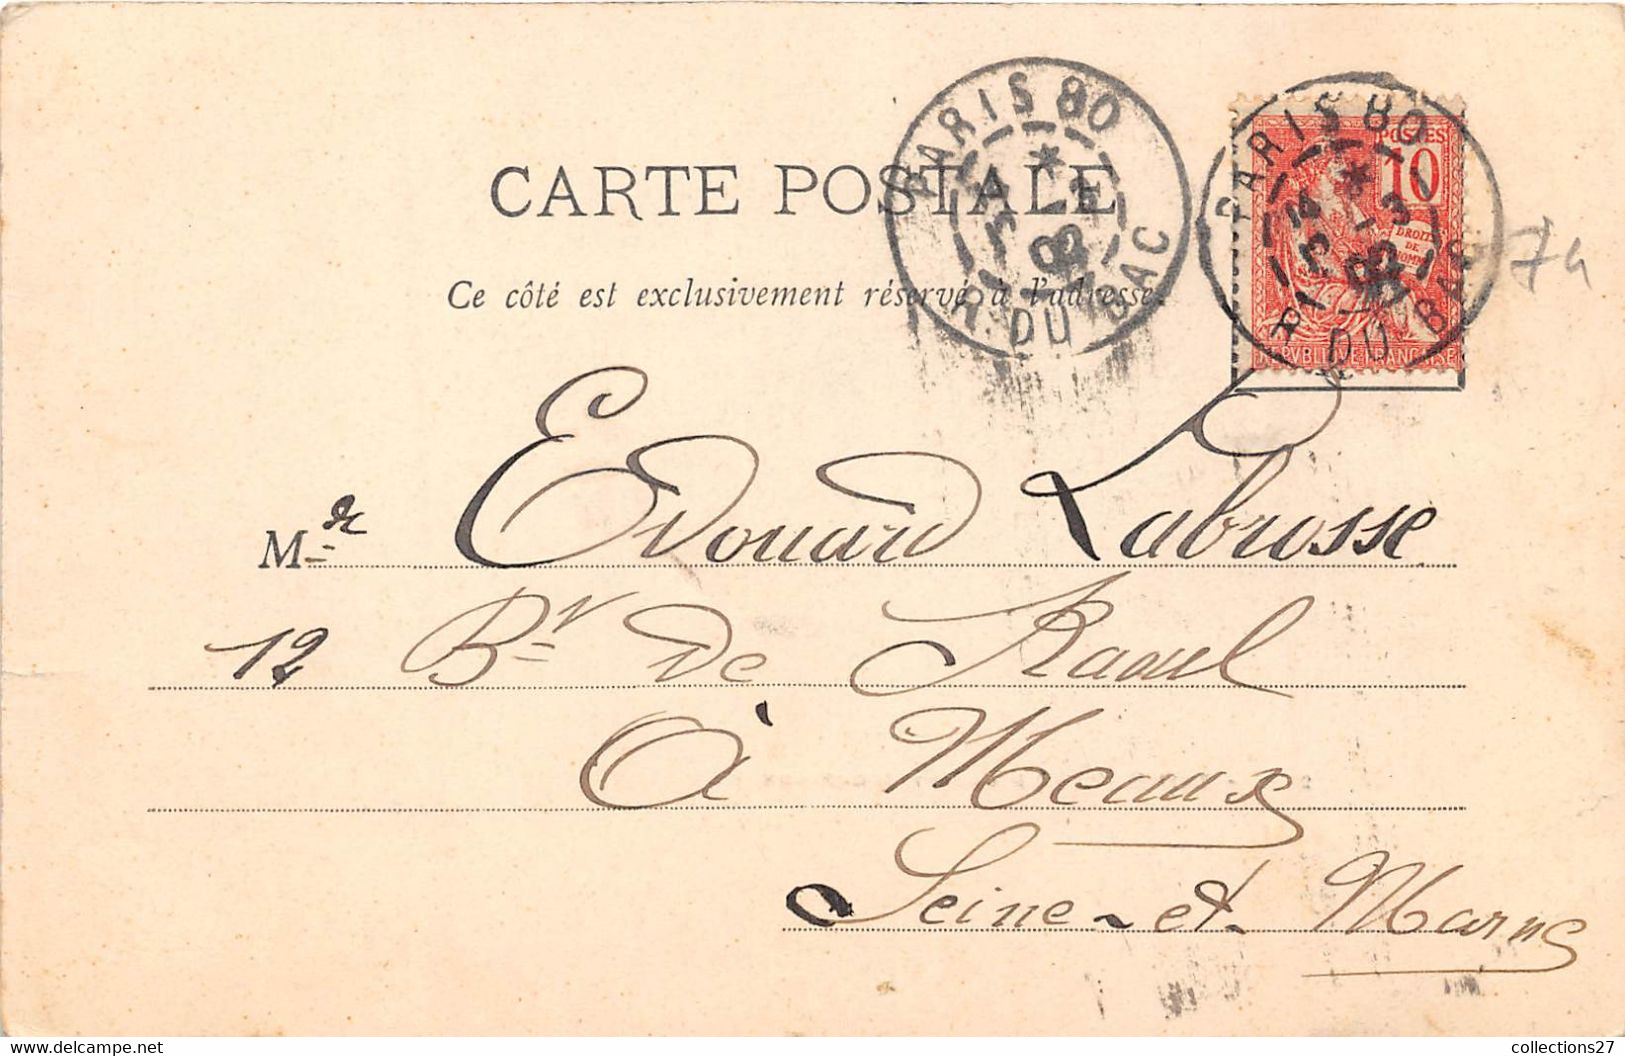 CARTE POSTALE
Ce côté est exclusivement réservé à l'adresse.
PARIS 80
R. DU BAC
PARIS 80
R. DU BAC
POSTES
10
DROITS
DE
REPVBLIQUE FRANCAISE
7h
M de Edouard Labrosse
12 Bv de Raoul
À Meaux
Seine-et-Marne
https://www.delcampe.net
collections27